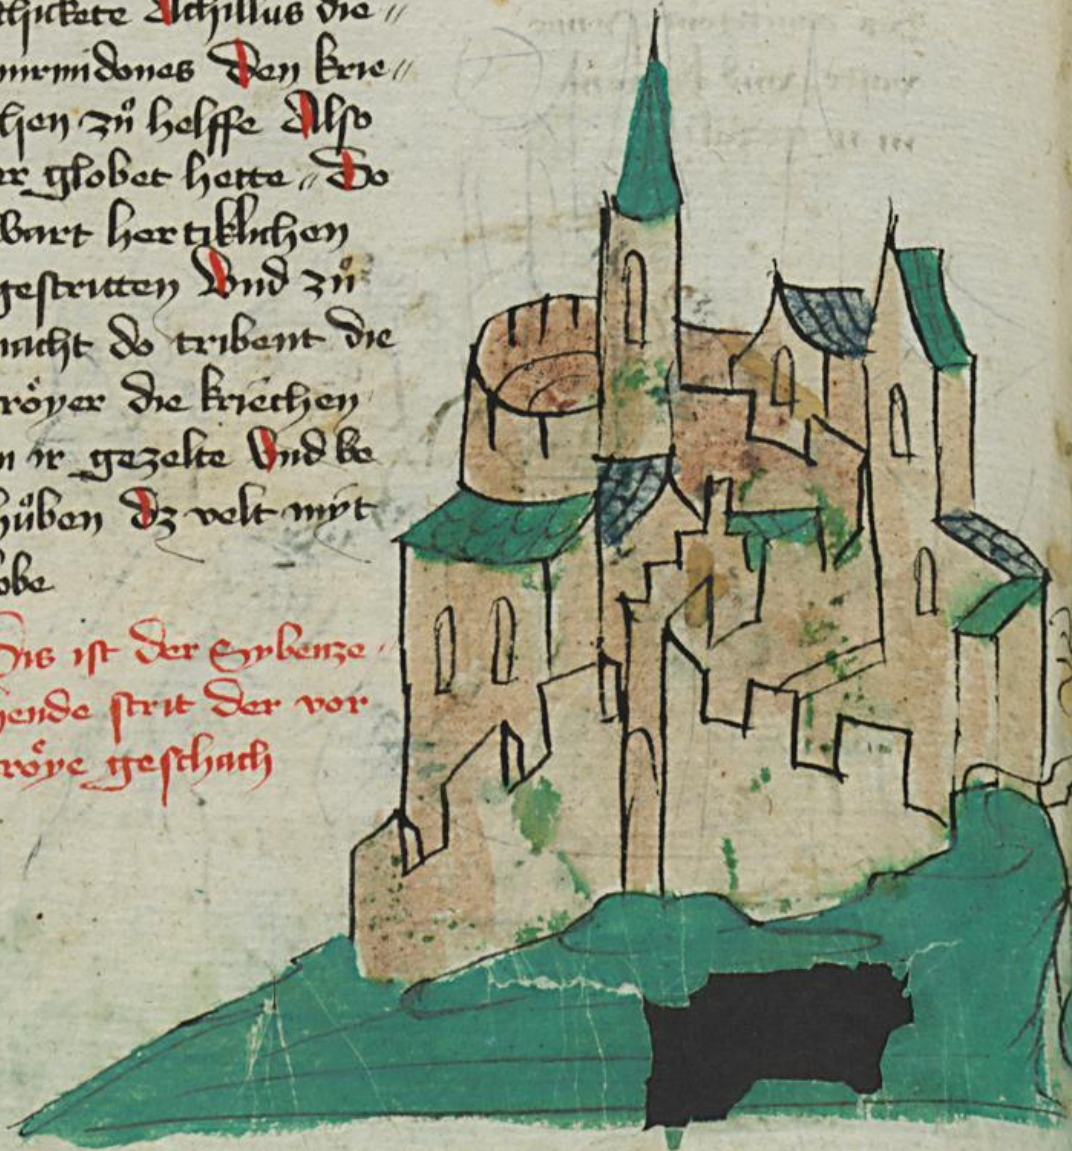 schickete Achillus die〃
mirmidones Den krie〃
chen zuͦ helffe Also
er globet hette〃 Do
wart hertiklichen
gestritten Vnd zuͦ
nacht do tribent die
röyer die kriechen
n ir gezelte Vnd be
huͦben dz velt myt
obe
Dis ist der Sybenze〃
hende strit der vor
röye geschach